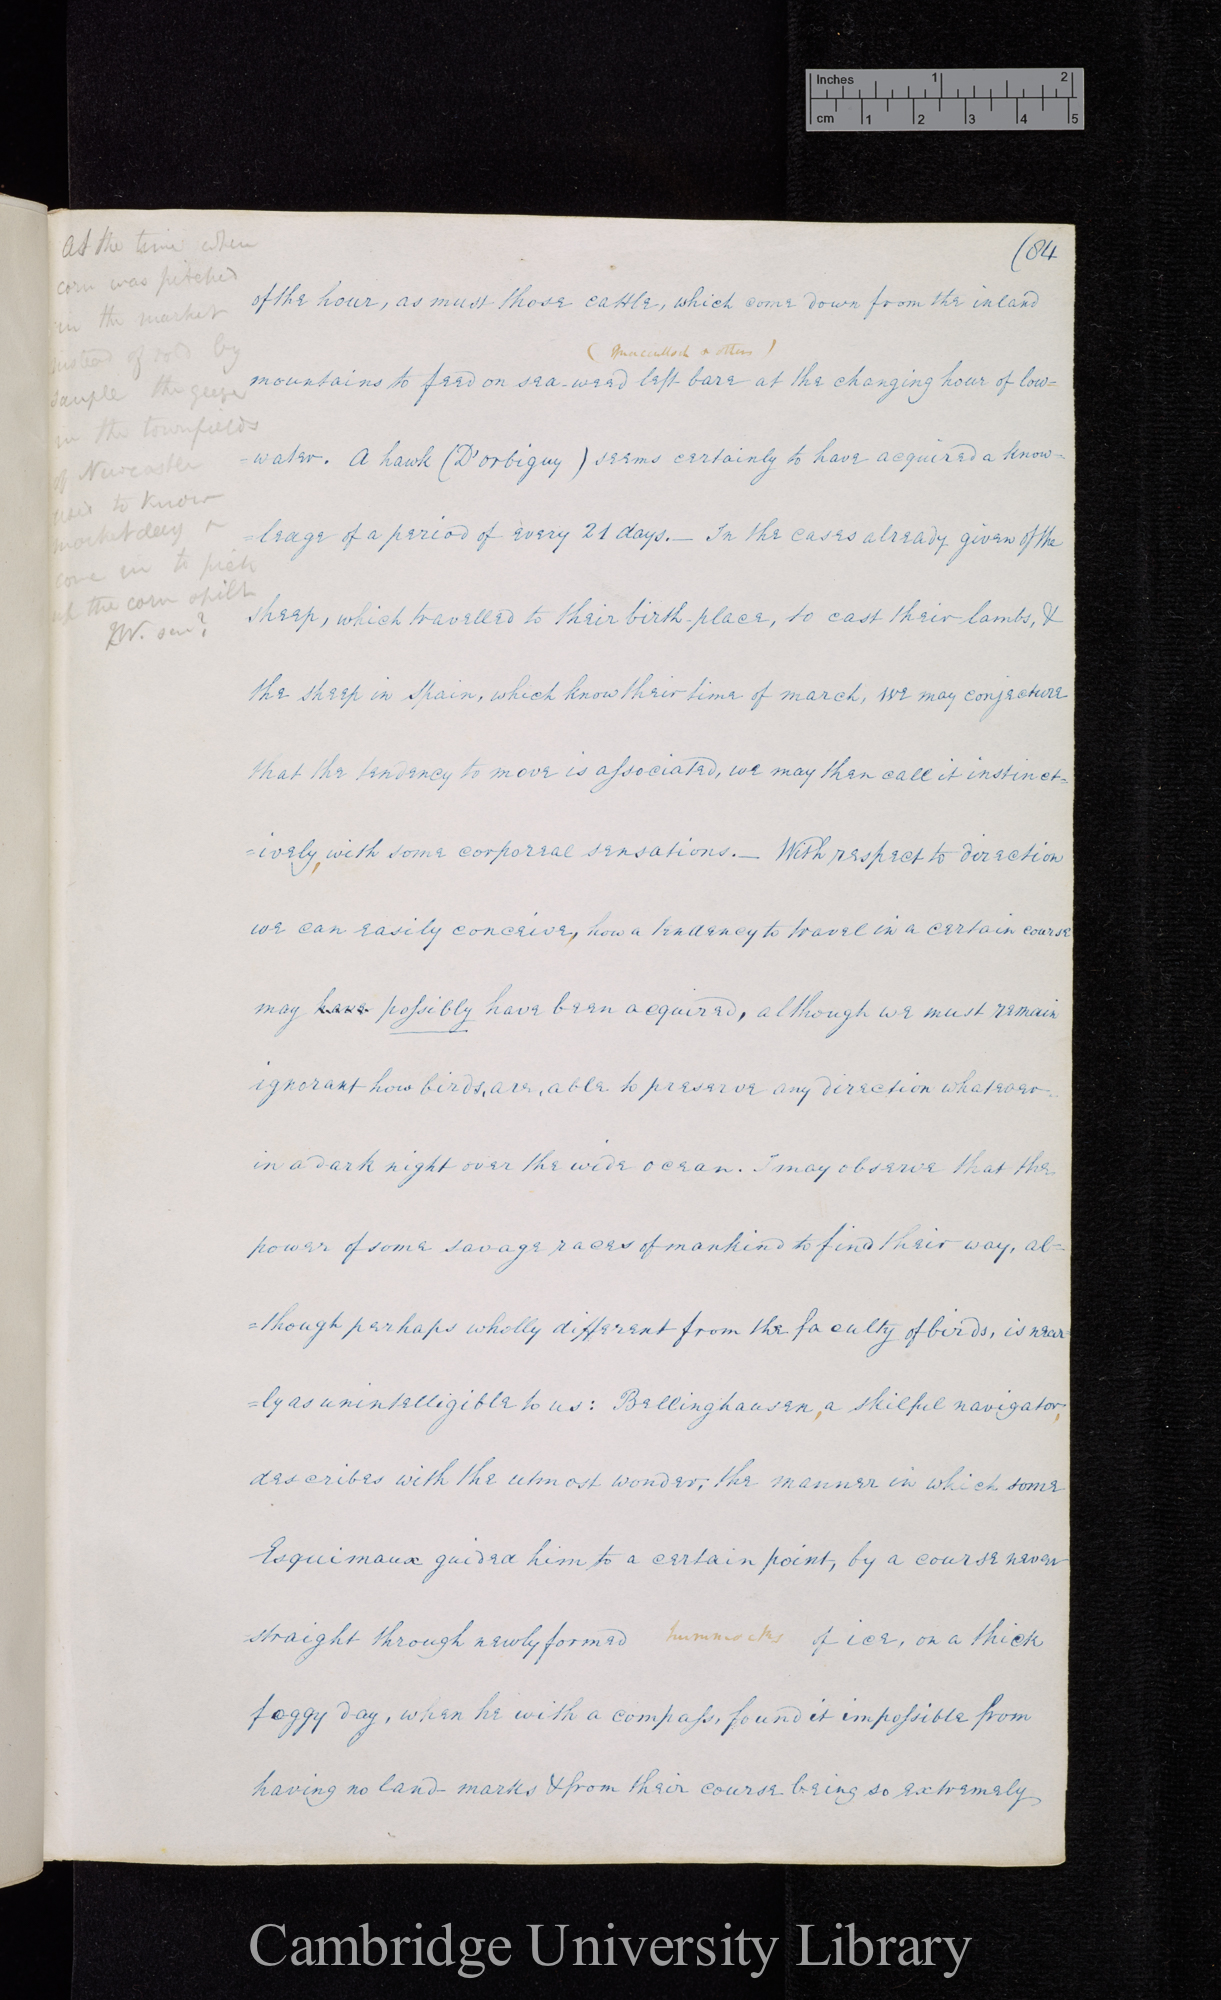 Inches 1 2
cm 1 2 3 4 5
(84
At the time when
corn was pitched
in the market
instead of sold by
sample the geese
in the townfields
of Newcastle
used to know
market day &
come in to pick
up the corn spilt
of the hour, as must those cattle, which come down from the inland
(Macculloch & others)
mountains to feed on sea-weed left bare at the changing hour of low=
-water. A hawk (D'orbigny) seems certainly to have acquired a know-
=ledge of a period of every 21 days. — In the cases already given of the
sheep, which travelled to their birth-place, to cast their lambs, &
the sheep in Spain, which know their time of march, we may conjecture
that the tendency to move is associated, we may then call it instinct-
=ively, with some corporeal sensations. — With respect to direction
we can easily conceive, how a tendency to travel in a certain course
may have possibly have been acquired, although we must remain
ignorant how birds, are, able to preserve any direction whatever-
in a dark night over the wide ocean. I may observe that the
power of some savage races of mankind to find their way, al-
=though perhaps wholly different from the faculty of birds, is near
=ly as unintelligible to us: Bellinghausen, a skilful navigator,
describes with the utmost wonder, the manner in which some
Esquimaux guided him to a certain point, by a course never
straight through newly formed hummocks of ice, on a thick
foggy day, when he with a compass, found it impossible from
having no land-marks & from their course being so extremely
Cambridge University Library